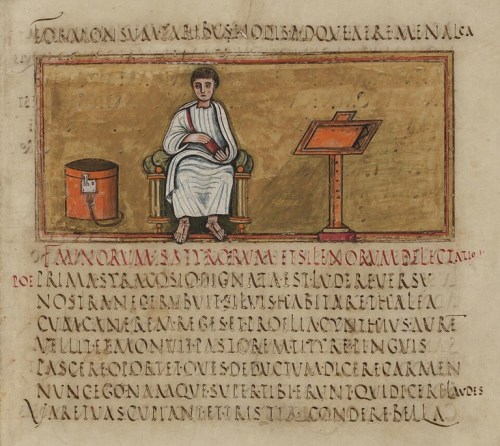 FORMONSUM PARIBUS NODIS ADQUE AERE MENALCA
FAUNORUM SATYRORUM ET SILENORUM DELECTATIO
POE PRIMA SYRACOSIO DIGNATA EST LUDERE VERSU
NOSTRA NEC ERUBUIT SILVIS HABITARE THALEA
CUM CANEREM REGES ET PROELIA CYNTHIUS AURE
VELLIT ET EMONUIT PASTOREM TITYRE PINGUIS
PASCERE OPORTET OVES DEDUCTUM DICERE CARMEN
NUNC EGO NAMQUE SUPER TIBI ERUNT QUI DICERE LAUDES
VARE TUAS CUPIANT ET TRISTIA CONDERE BELLA